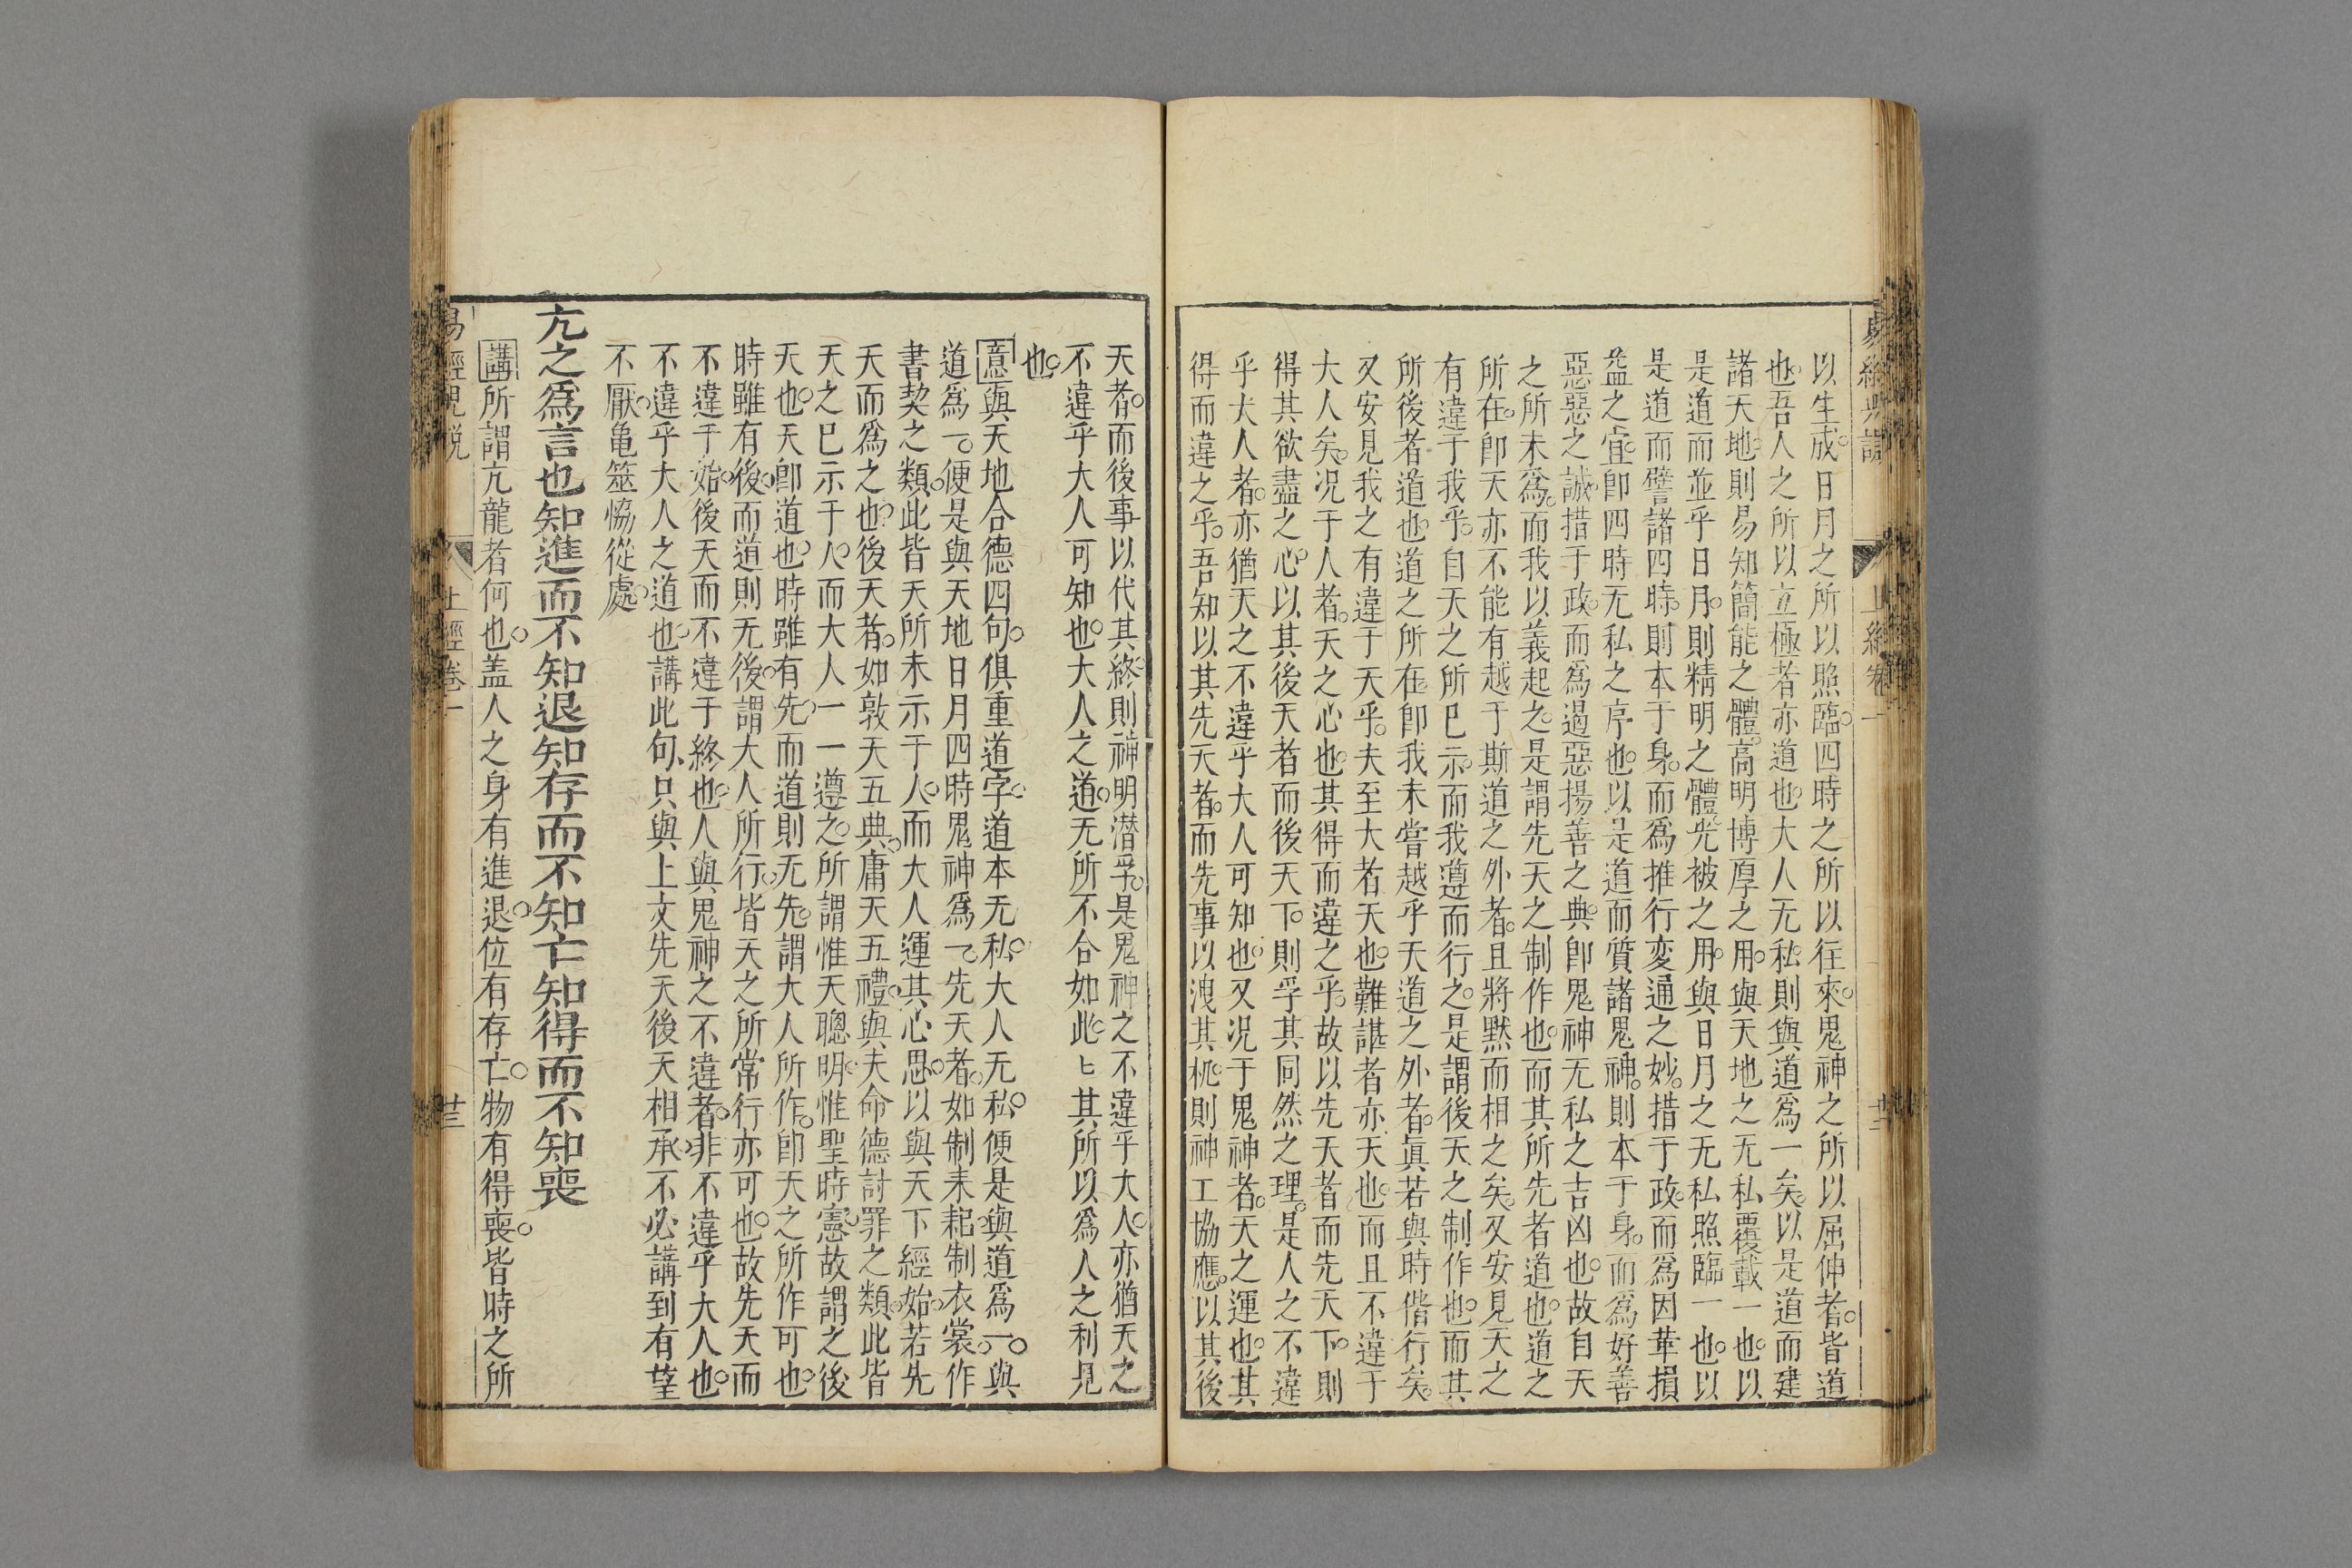 以生成日月之所以照臨四時之所以往來鬼神之所以屈伸者皆道
也吾人之所以立極者亦道也大人无私則與道爲一矣以是道而建
諸天地則易知簡能之體高明博厚之用與天地之无私覆載一也以
是道而並乎日月則精明之體光被之用與日月之无私照臨一也以
是道而譬諸四時則本于身而爲推行変通之妙措于政而爲因革損
益之宜卽四時无私之序也以是道而質諸鬼神則本于身而爲好善
惡惡之誠措于政而爲遏惡揚善之典卽鬼神无私之吉凶也故自天
之所未爲而我以義起之是謂先天之制作也而其所先者道也道之
所在卽天亦不能有越于斯道之外者且將默而相之矣又安見天之
有違于我乎自天之所巳示而我遵而行之是謂後天之制作也而其
所後者道也道之所在卽我未嘗越乎天道之外者眞若與時偕行矣
又安見我之有違于天乎夫至大者天也難諶者亦天也而且不違于
大人矣况于人者天之心也其得而違之乎故以先天者而先天下則
得其欲盡之心以其後天者而後天下則孚其同然之理是人之不違
乎大人者亦猶天之不違乎大人可知也又况于鬼神者天之運也其
得而違之乎吾知以其先天者而先事以洩其机則神工協應以其後
天者而後事以代其終則神明潜孚是鬼神之不違乎大人亦猶天之
不違乎大人可知也大人之道无所不合如此〻其所以爲人之利見
也
意與天地合德四句俱重道字道本无私大人无私便是與道爲一與
道爲一便是與天地日月四時鬼神爲一先天者如制耒耜制衣裳作
書契之類此皆天所未示于人而大人運其心思以與天下經始若先
天而爲之也後天者如敦天五典庸天五禮與夫命德討罪之類此皆
天之巳示于人而大人一一遵之所謂惟天聰明惟聖時憲故謂之後
天也天卽道也時雖有先而道則无先謂大人所作卽天之所作可也
時雖有後而道則无後謂大人所行皆天之所常行亦可也故先天而
不違于始後天而不違于終也人與鬼神之不違者非不違乎大人也
不違乎大人之道也講此句只與上文先天後天相承不必講到有望
不厭亀筮恊從處
亢之爲言也知進而不知退知存而不知亡知得而不知喪
講所謂亢龍者何也盖人之身有進退位有存亡物有得喪皆時之所
上經卷一
廿三